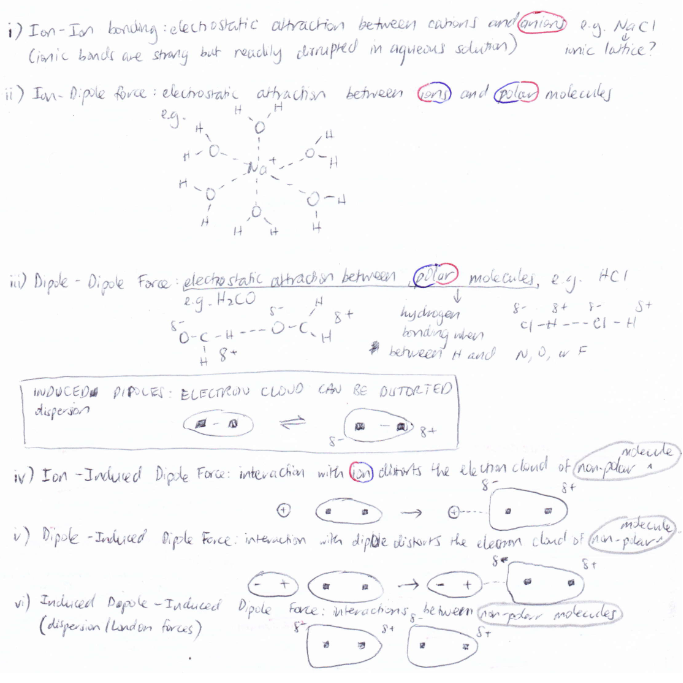 i) Ion-Ion bonding: electrostatic attraction between cations and anions e.g. NaCl
(ionic bonds are strong but readily disrupted in aqueous solution) ionic lattice?
ii) Ion-Dipole force: electrostatic attraction between ions and polar molecules
e.g.
H H
H O H
H O O H
Na+
H O O H
H O H
H H
iii) Dipole-Dipole Force: electrostatic attraction between polar molecules, e.g. HCl
e.g. H2CO
δ- δ- H δ+
O-C-H---O-C H
H δ+
hydrogen
bonding when
between H and N, O, or F
δ- δ+ δ- δ+
Cl-H---Cl-H
INDUCED DIPOLES: ELECTRON CLOUD CAN BE DISTORTED
dispersion
- ⇌ -
δ- δ+
molecule
iv) Ion-Induced Dipole Force: interaction with ion distorts the electron cloud of non-polar ^
δ- δ+
+ → +
molecule
v) Dipole-Induced Dipole Force: interaction with dipole distorts the electron cloud of non-polar ^
δ- δ+
- + → - +
vi) Induced Dipole-Induced Dipole Force: interactions between non-polar molecules
(dispersion/London forces)
δ- δ+ δ- δ+